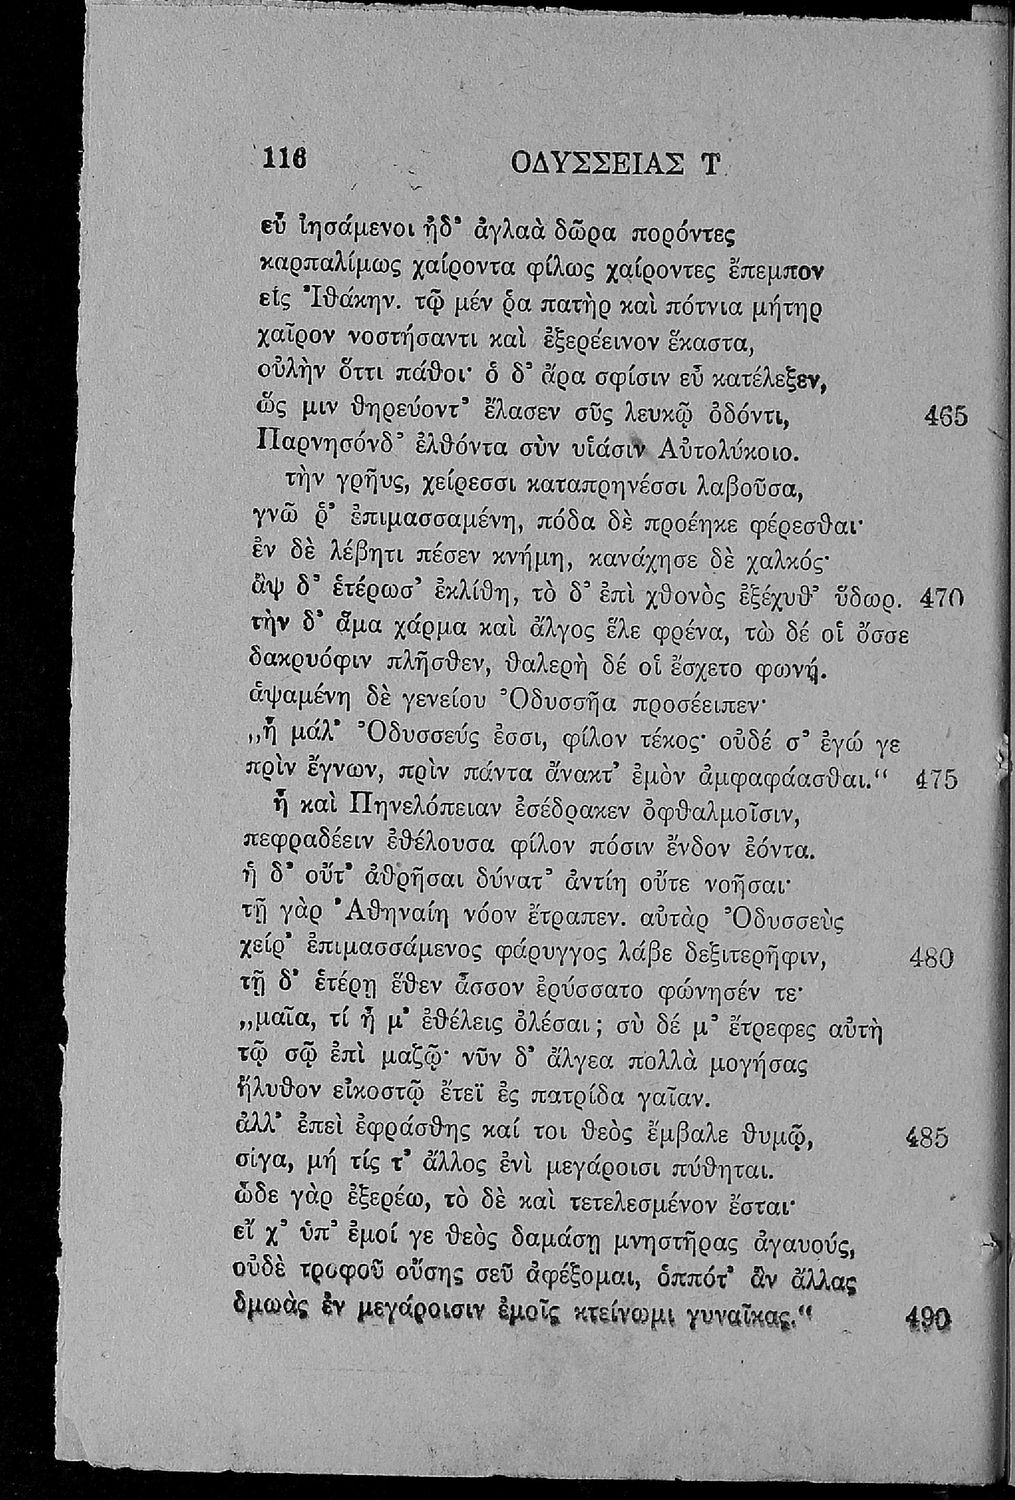 116 ΟΔΥΣΣΕΙΑΣ Τ
εὖ ἰησάμενοι ἠδ᾽ ἀγλαὰ δῶρα πορόντες
καρπαλίμως χαίροντα φίλως χαίροντες ἔπεμπον
εἰς Ἰθάκην. τῷ μέν ῥα πατὴρ καὶ πότνια μήτηρ
χαῖρον νοστήσαντι καὶ ἐξερέεινον ἕκαστα,
οὐλὴν ὅττι πάθοι· ὁ δ᾽ ἄρα σφίσιν εὖ κατέλεξεν,
ὥς μιν θηρεύοντ᾽ ἔλασεν σῦς λευκῷ ὀδόντι, 465
Παρνησόνδ᾽ ἐλθόντα σὺν υἱάσιν Αὐτολύκοιο.
τὴν γρῆυς, χείρεσσι καταπρηνέσσι λαβοῦσα,
γνῶ ῥ᾽ ἐπιμασσαμένη, πόδα δὲ προέηκε φέρεσθαι·
ἐν δὲ λέβητι πέσεν κνήμη, κανάχησε δὲ χαλκός·
ἂψ δ᾽ ἑτέρωσ᾽ ἐκλίθη, τὸ δ᾽ ἐπὶ χθονὸς ἐξέχυθ᾽ ὕδωρ. 470
τὴν δ᾽ ἅμα χάρμα καὶ ἄλγος ἕλε φρένα, τὼ δέ οἱ ὄσσε
δακρυόφιν πλῆσθεν, θαλερὴ δέ οἱ ἔσχετο φωνή.
ἁψαμένη δὲ γενείου Ὀδυσσῆα προσέειπεν·
„ἦ μάλ᾽ Ὀδυσσεύς ἐσσι, φίλον τέκος· οὐδέ σ᾽ ἐγώ γε
πρὶν ἔγνων, πρὶν πάντα ἄνακτ᾽ ἐμὸν ἀμφαφάασθαι.“ 475
ἦ καὶ Πηνελόπειαν ἐσέδρακεν ὀφθαλμοῖσιν,
πεφραδέειν ἐθέλουσα φίλον πόσιν ἔνδον ἐόντα.
ἡ δ᾽ οὔτ᾽ ἀθρῆσαι δύνατ᾽ ἀντίη οὔτε νοῆσαι·
τῇ γὰρ Ἀθηναίη νόον ἔτραπεν. αὐτὰρ Ὀδυσσεὺς
χείρ᾽ ἐπιμασσάμενος φάρυγγος λάβε δεξιτερῆφιν, 480
τῇ δ᾽ ἑτέρῃ ἕθεν ἆσσον ἐρύσσατο φώνησέν τε·
„μαῖα, τί ἦ μ᾽ ἐθέλεις ὀλέσαι; σὺ δέ μ᾽ ἔτρεφες αὐτὴ
τῷ σῷ ἐπὶ μαζῷ· νῦν δ᾽ ἄλγεα πολλὰ μογήσας
ἤλυθον εἰκοστῷ ἔτεϊ ἐς πατρίδα γαῖαν.
ἀλλ᾽ ἐπεὶ ἐφράσθης καί τοι θεὸς ἔμβαλε θυμῷ, 485
σίγα, μή τίς τ᾽ ἄλλος ἐνὶ μεγάροισι πύθηται.
ὧδε γὰρ ἐξερέω, τὸ δὲ καὶ τετελεσμένον ἔσται·
εἴ χ᾽ ὑπ᾽ ἐμοί γε θεὸς δαμάσῃ μνηστῆρας ἀγαυούς,
οὐδὲ τροφοῦ οὔσης σεῦ ἀφέξομαι, ὁππότ᾽ ἂν ἄλλας
δμωὰς ἐν μεγάροισιν ἐμοῖς κτείνωμι γυναῖκας.“ 490